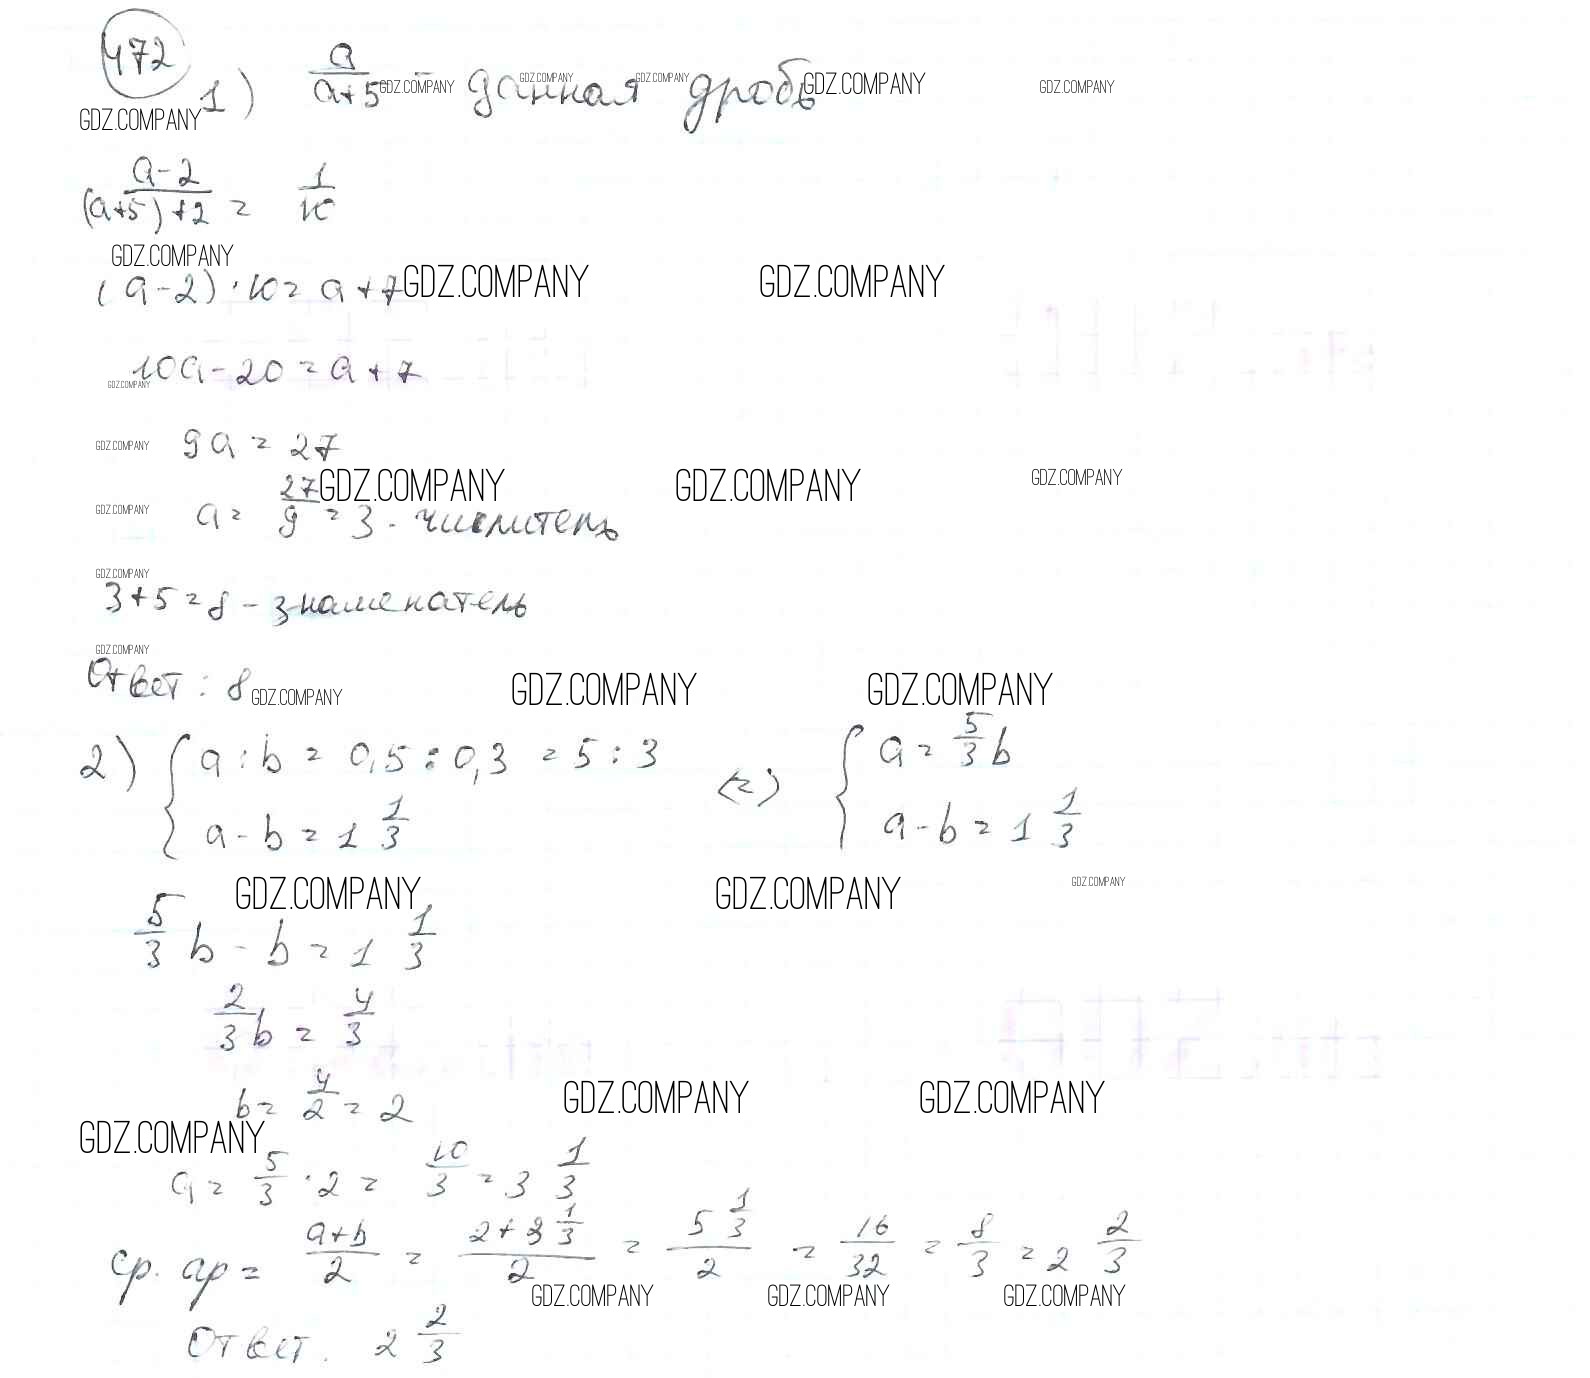 472
1) a/(a+5) - данная дробь
GDZ.COMPANY GDZ.COMPANY GDZ.COMPANY GDZ.COMPANY GDZ.COMPANY
GDZ.COMPANY
(a-2)/((a+5)+2) = 1/10
GDZ.COMPANY
(a-2)·10 = a+7
GDZ.COMPANY GDZ.COMPANY
10a-20 = a+7
GDZ.COMPANY
GDZ.COMPANY
9a = 27
GDZ.COMPANY GDZ.COMPANY GDZ.COMPANY
GDZ.COMPANY
a = 27/9 = 3 - числитель
GDZ.COMPANY
3+5 = 8 - знаменатель
GDZ.COMPANY
Ответ: 8
GDZ.COMPANY GDZ.COMPANY GDZ.COMPANY
2) { a:b = 0,5:0,3 = 5:3 <=> { a = 5/3 b
a-b = 1 1/3 a-b = 1 1/3
GDZ.COMPANY GDZ.COMPANY GDZ.COMPANY
5/3 b - b = 1 1/3
2/3 b = 4/3
b = 4/2 = 2
GDZ.COMPANY GDZ.COMPANY
GDZ.COMPANY
a = 5/3 · 2 = 10/3 = 3 1/3
ср. ар = (a+b)/2 = (2+3 1/3)/2 = (5 1/3)/2 = 16/32 = 8/3 = 2 2/3
GDZ.COMPANY GDZ.COMPANY GDZ.COMPANY
Ответ. 2 2/3